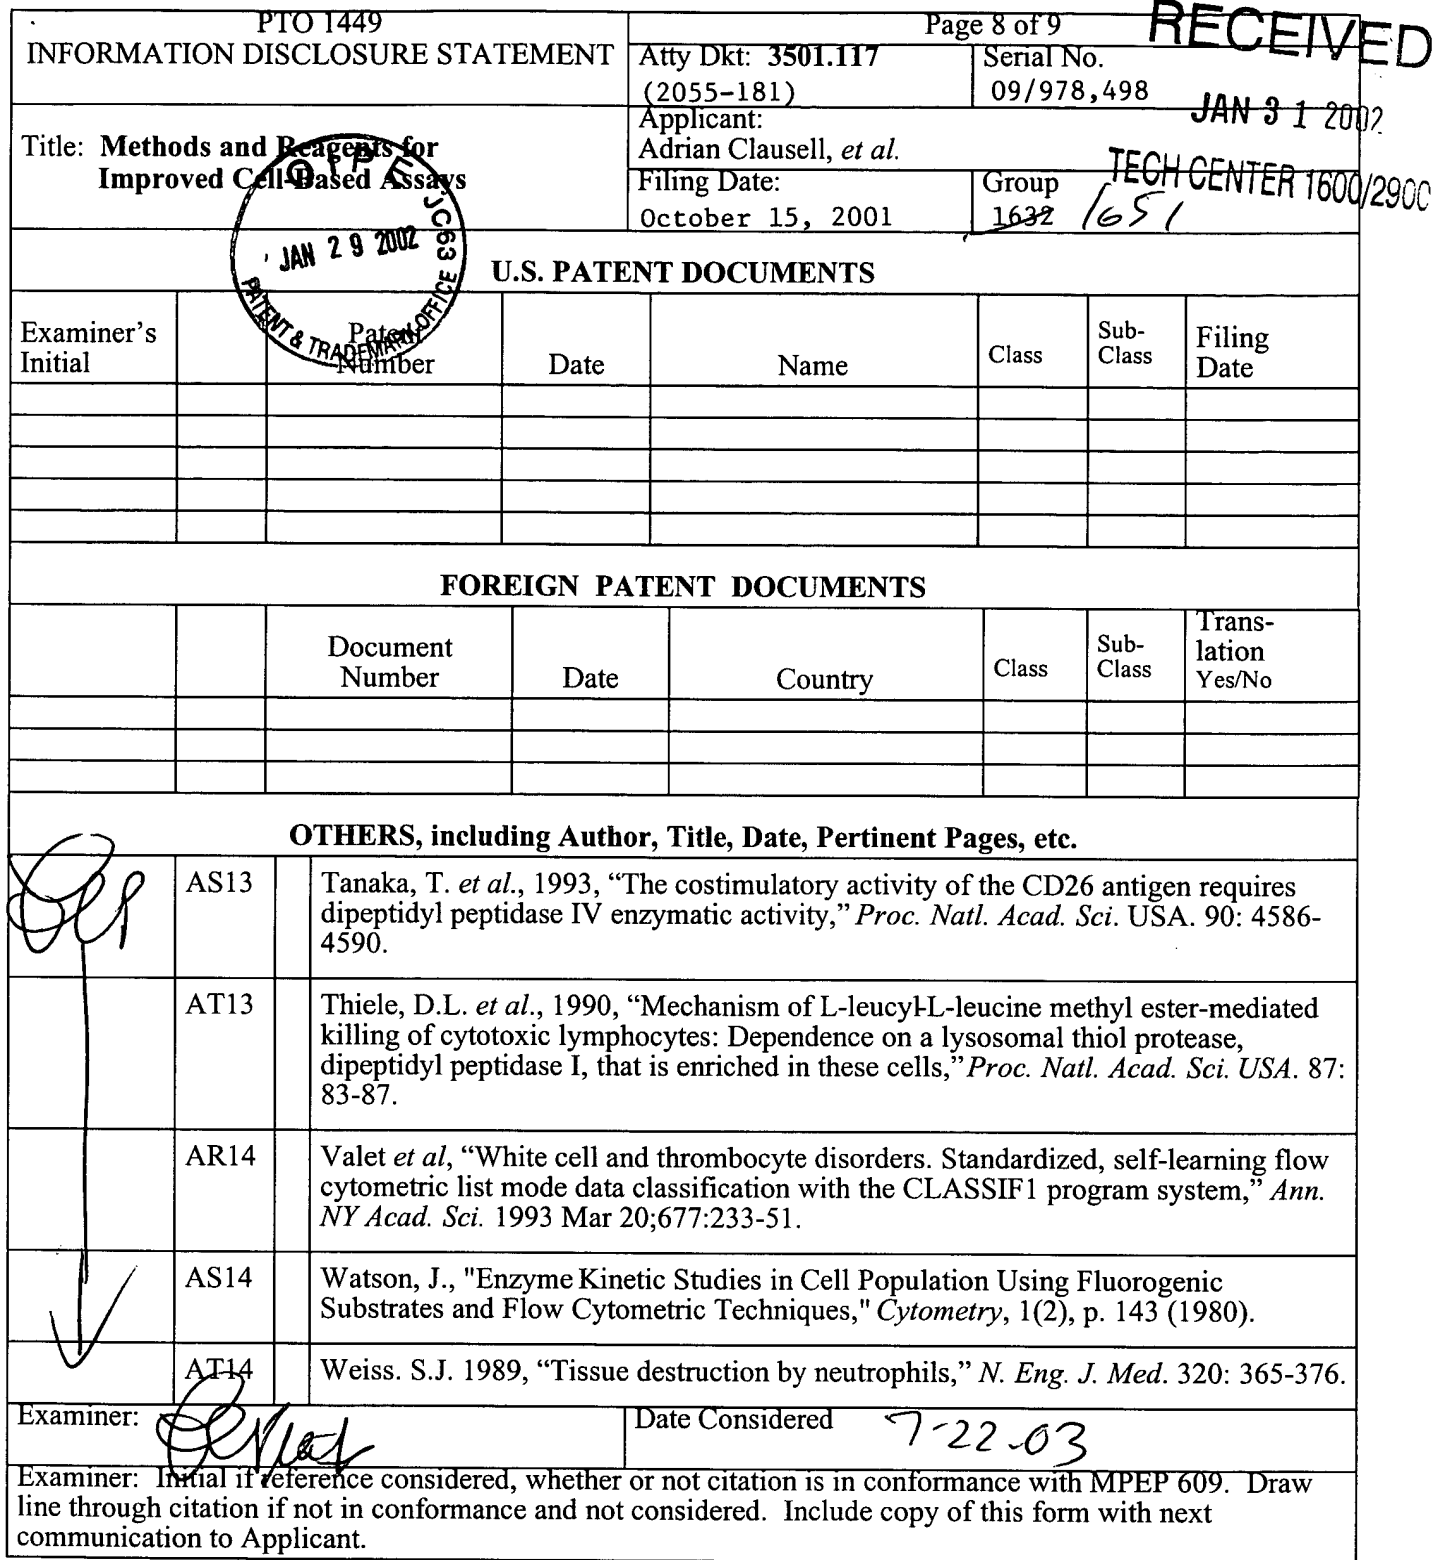 PTO 1449
INFORMATION DISCLOSURE STATEMENT
Page 8 of 9
RECEIVED
Atty Dkt: 3501.117
(2055-181)
Serial No.
09/978,498
JAN 3 1 2002
Title: Methods and Reagents for
Improved Cell-Based Assays
Applicant:
Adrian Clausell, et al.
TECH CENTER 1600/2900
Filing Date:
October 15, 2001
Group
1632 1651
OIPE JC63
JAN 2 9 2002
PATENT & TRADEMARK OFFICE
U.S. PATENT DOCUMENTS
Examiner's
Initial
Patent
Number
Date
Name
Class
Sub-
Class
Filing
Date
FOREIGN PATENT DOCUMENTS
Document
Number
Date
Country
Class
Sub-
Class
Trans-
lation
Yes/No
OTHERS, including Author, Title, Date, Pertinent Pages, etc.
AS13 Tanaka, T. et al., 1993, “The costimulatory activity of the CD26 antigen requires
dipeptidyl peptidase IV enzymatic activity,” Proc. Natl. Acad. Sci. USA. 90: 4586-
4590.
AT13 Thiele, D.L. et al., 1990, “Mechanism of L-leucyl-L-leucine methyl ester-mediated
killing of cytotoxic lymphocytes: Dependence on a lysosomal thiol protease,
dipeptidyl peptidase I, that is enriched in these cells,” Proc. Natl. Acad. Sci. USA. 87:
83-87.
AR14 Valet et al, “White cell and thrombocyte disorders. Standardized, self-learning flow
cytometric list mode data classification with the CLASSIF1 program system,” Ann.
NY Acad. Sci. 1993 Mar 20;677:233-51.
AS14 Watson, J., "Enzyme Kinetic Studies in Cell Population Using Fluorogenic
Substrates and Flow Cytometric Techniques," Cytometry, 1(2), p. 143 (1980).
AT14 Weiss. S.J. 1989, “Tissue destruction by neutrophils,” N. Eng. J. Med. 320: 365-376.
Examiner:
Date Considered 7-22-03
Examiner: Initial if reference considered, whether or not citation is in conformance with MPEP 609. Draw
line through citation if not in conformance and not considered. Include copy of this form with next
communication to Applicant.